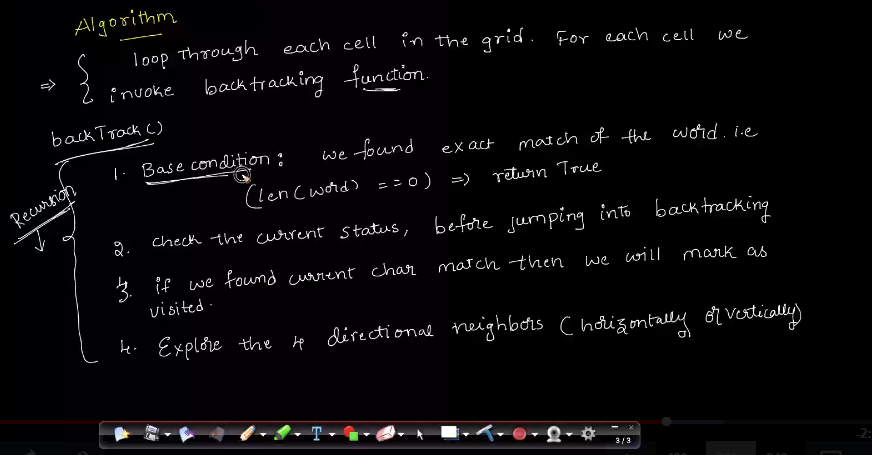 Algorithm
⇒ { loop through each cell in the grid. For each cell we
invoke backtracking function.
backTrack()
1. Base condition: we found exact match of the word. i.e
(len(word) == 0) ⇒ return True
Recursion
2. check the current status, before jumping into backtracking
3. if we found current char match then we will mark as
visited.
4. Explore the 4 directional neighbors (horizontally or vertically)
T
3/3
-2: